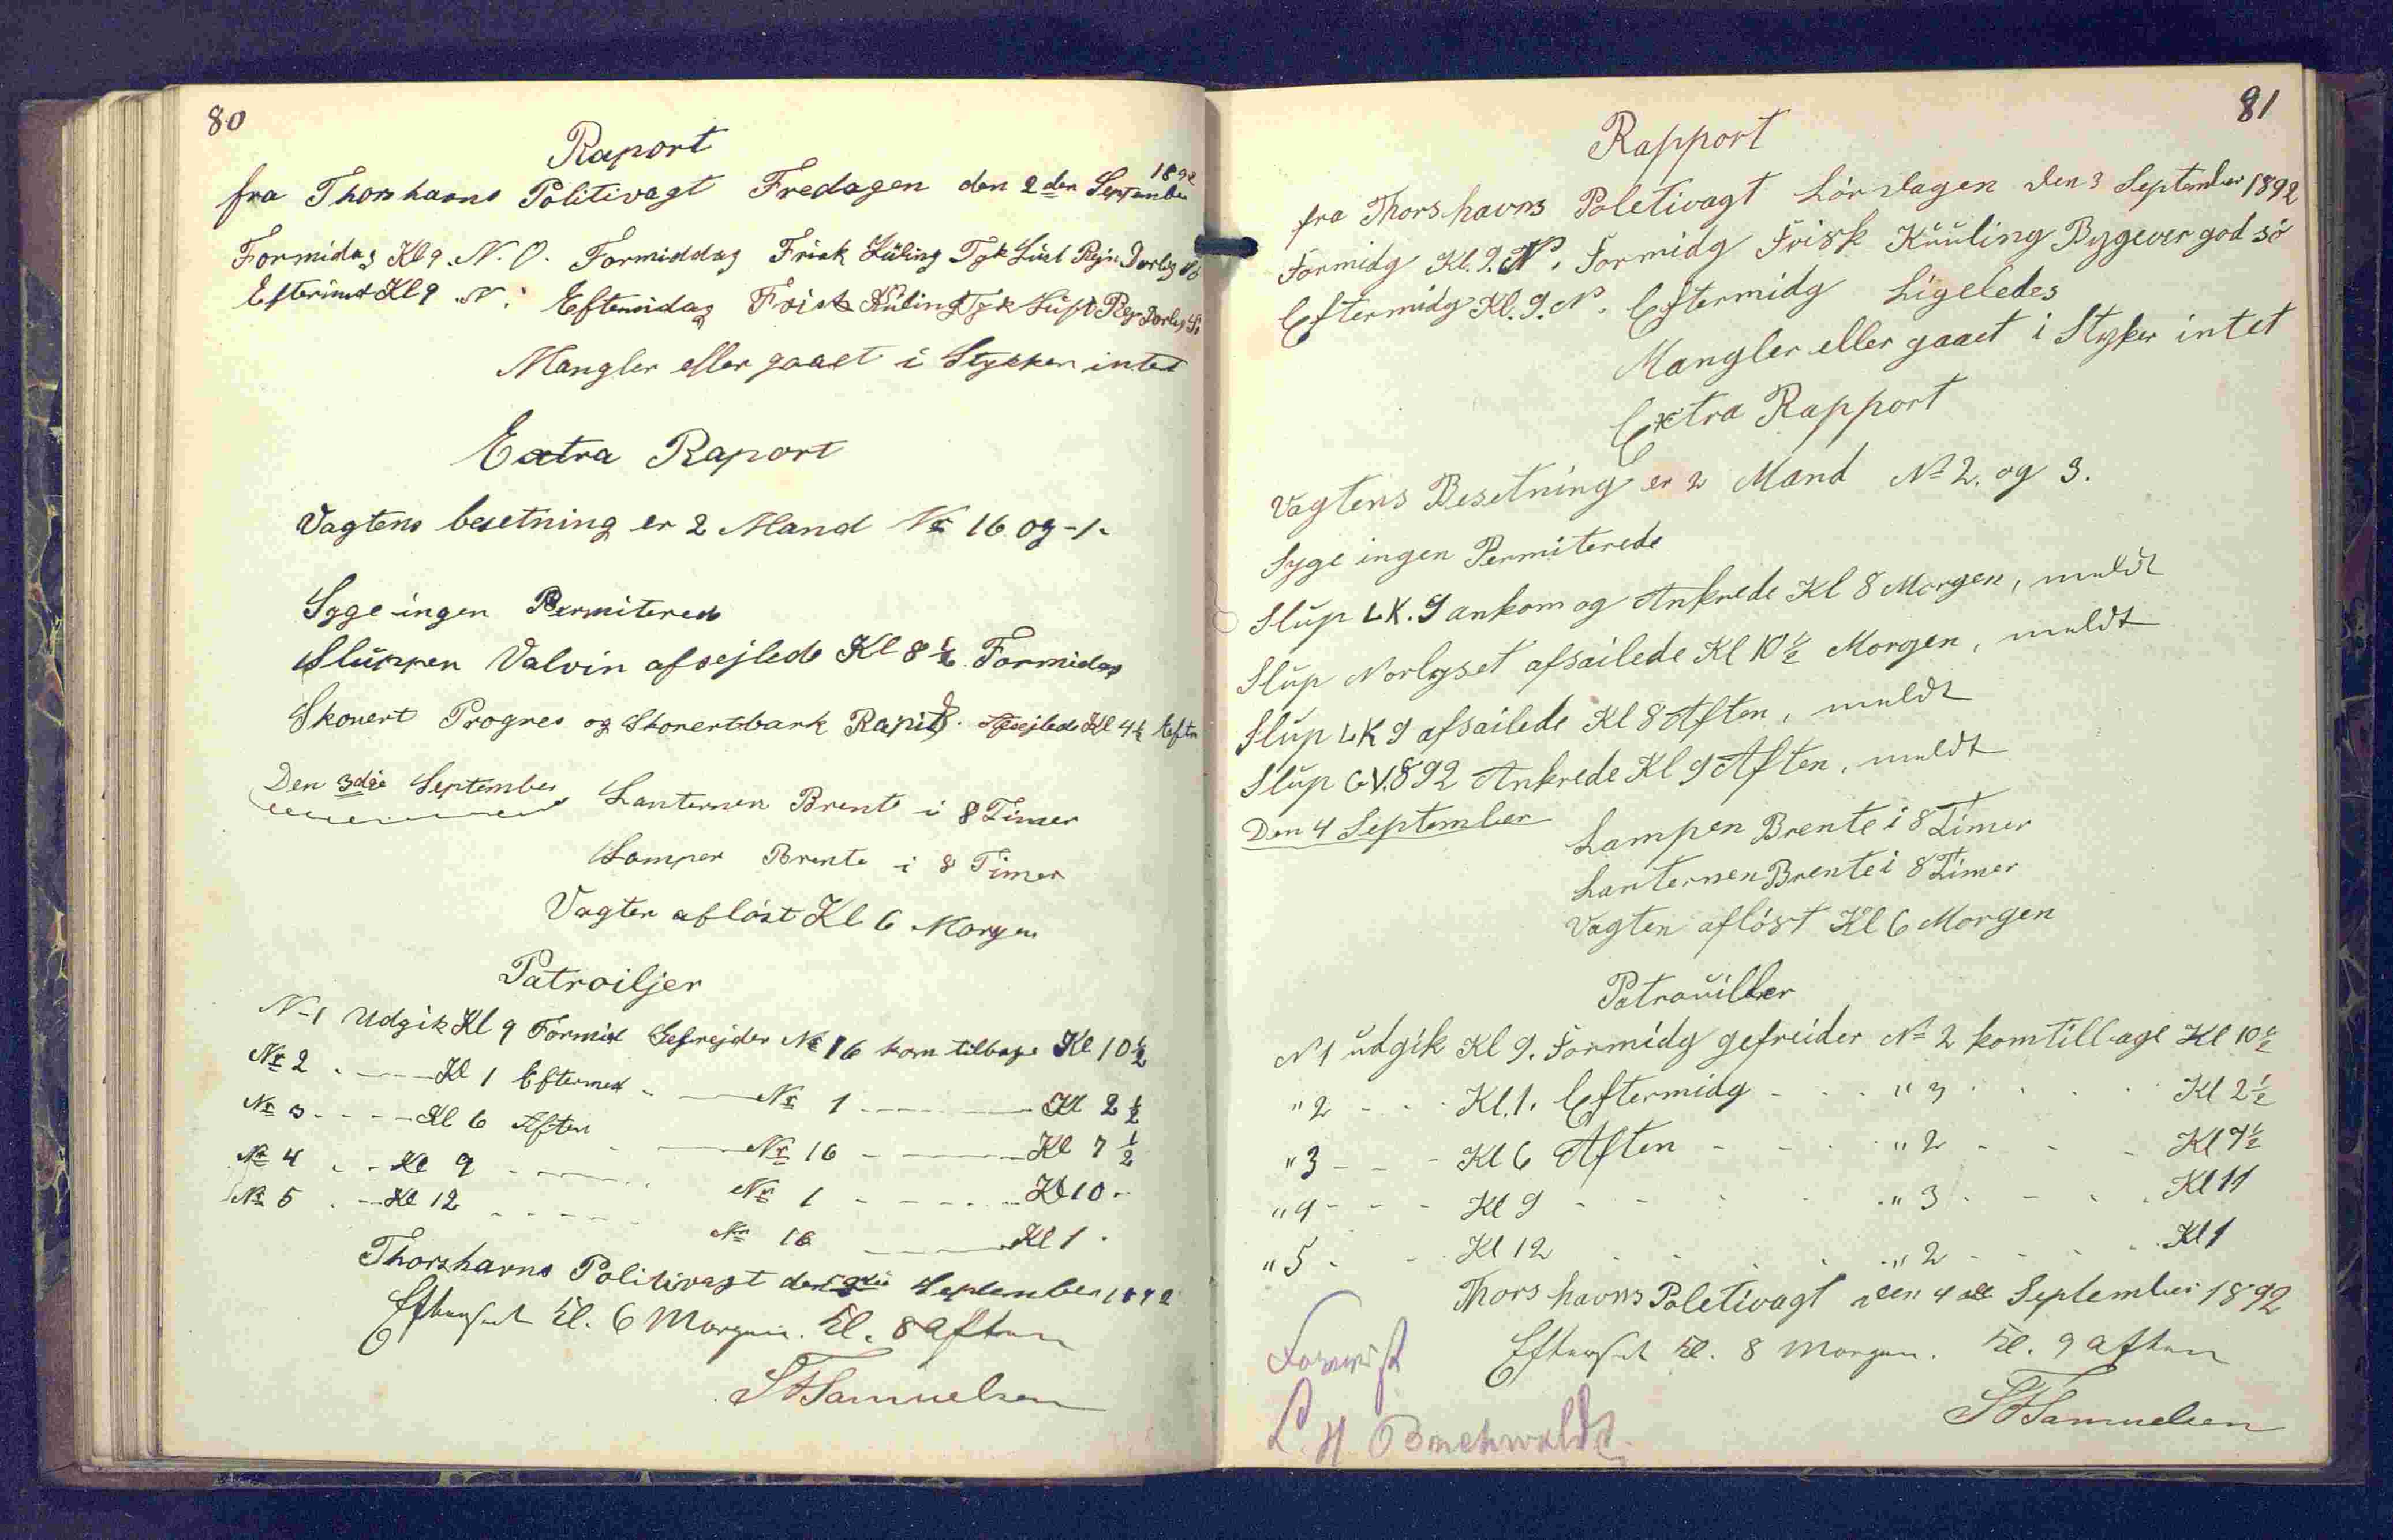 80
Raport
fra Thorshavns Politivagt Fredagen den 2den September 1892
Formidag Kl 9. N. O. Formiddag Frisk Küling Tyk Lüst Rejn Dorlig Sö
Eftermt Kl 9 N. Eftemidag Frisk Küling Tyk Lüft Rejn Dorlig Sö
Mangler eller gaaet i Stykker intet
Extra Raport
Vagtens besetning er 2 Mand Nr 16 og -1-
Syge ingen Permiterede
Sluppen Valvin afsejlede Kl 8½ Formidag
Skonert Progres og Skonertbark Rapid. Afsejlede Kl 4½ Eftm
Den 3die September Lanternen Brente i 8 Timer
Lampen Brente i 8 Timer
Vagten aflöst Kl 6 Morgen
Patroiljer
N-1 Udgik Kl 9 Formid Gefrejder Nr 16 kom tilbage Kl 10½
Nr 2 . - Kl 1 Eftermid - Nr 1 - Kl 2½
Nr 3 - - Kl 6 Aften - Nr 16 - Kl 7½
Nr 4 . - Kl 9 - Nr 1 - Kl 10 -
Nr 5 . - Kl 12 - Nr 16 - Kl 1 -
Thorshavns Politivagt den 3die September 1892
Efterset Kl. 6 Morgen. Kl. 8 Aften
Samuelsen
81
Rapport
fra Thorshavns Poletivagt Lördagen den 3 September 1892
Formidg Kl. 9. N. Formidg Frisk Kuuling Bygever god sö
Eftermidg Kl. 9. N. Eftermidg Ligeledes
Mangler eller gaaet i Styker intet
Extra Rapport
Vagtens Besetning er 2 Mand No 2. og 3.
Syge ingen Permiterede
Slup LK. 9 ankom og Ankrede Kl 8 Morgen, meldt
Slup Norlyset afsailede Kl 10½ Morgen, meldt
Slup LK 9 afsailede Kl 8 Aften, meldt
Slup GV.892 Ankrede Kl 9 Aften, meldt
Den 4 September Lampen Brente i 8 Timer
Lanternen Brente i 8 Timer
Vagten aflöst Kl 6 Morgen
Patrouiller
N 1 udgik Kl 9. Formidg gefreider No 2 kom tilbage Kl 10½
" 2 - - - Kl. 1. Eftermidg - - - " 3 - - - Kl 2½
" 3 - - - Kl 6 Aften - - - " 2 - - - Kl 7½
" 4 - - - Kl 9 - - - " 3 - - - Kl 11
" 5 - - - Kl 12 - - - " 2 - - - Kl 1
Thorshavns Poletivagt den 4de September 1892
Efterset Kl. 8 Morgen. Kl. 9 aften
Samuelsen
Forevist
L. H. Buchwaldt